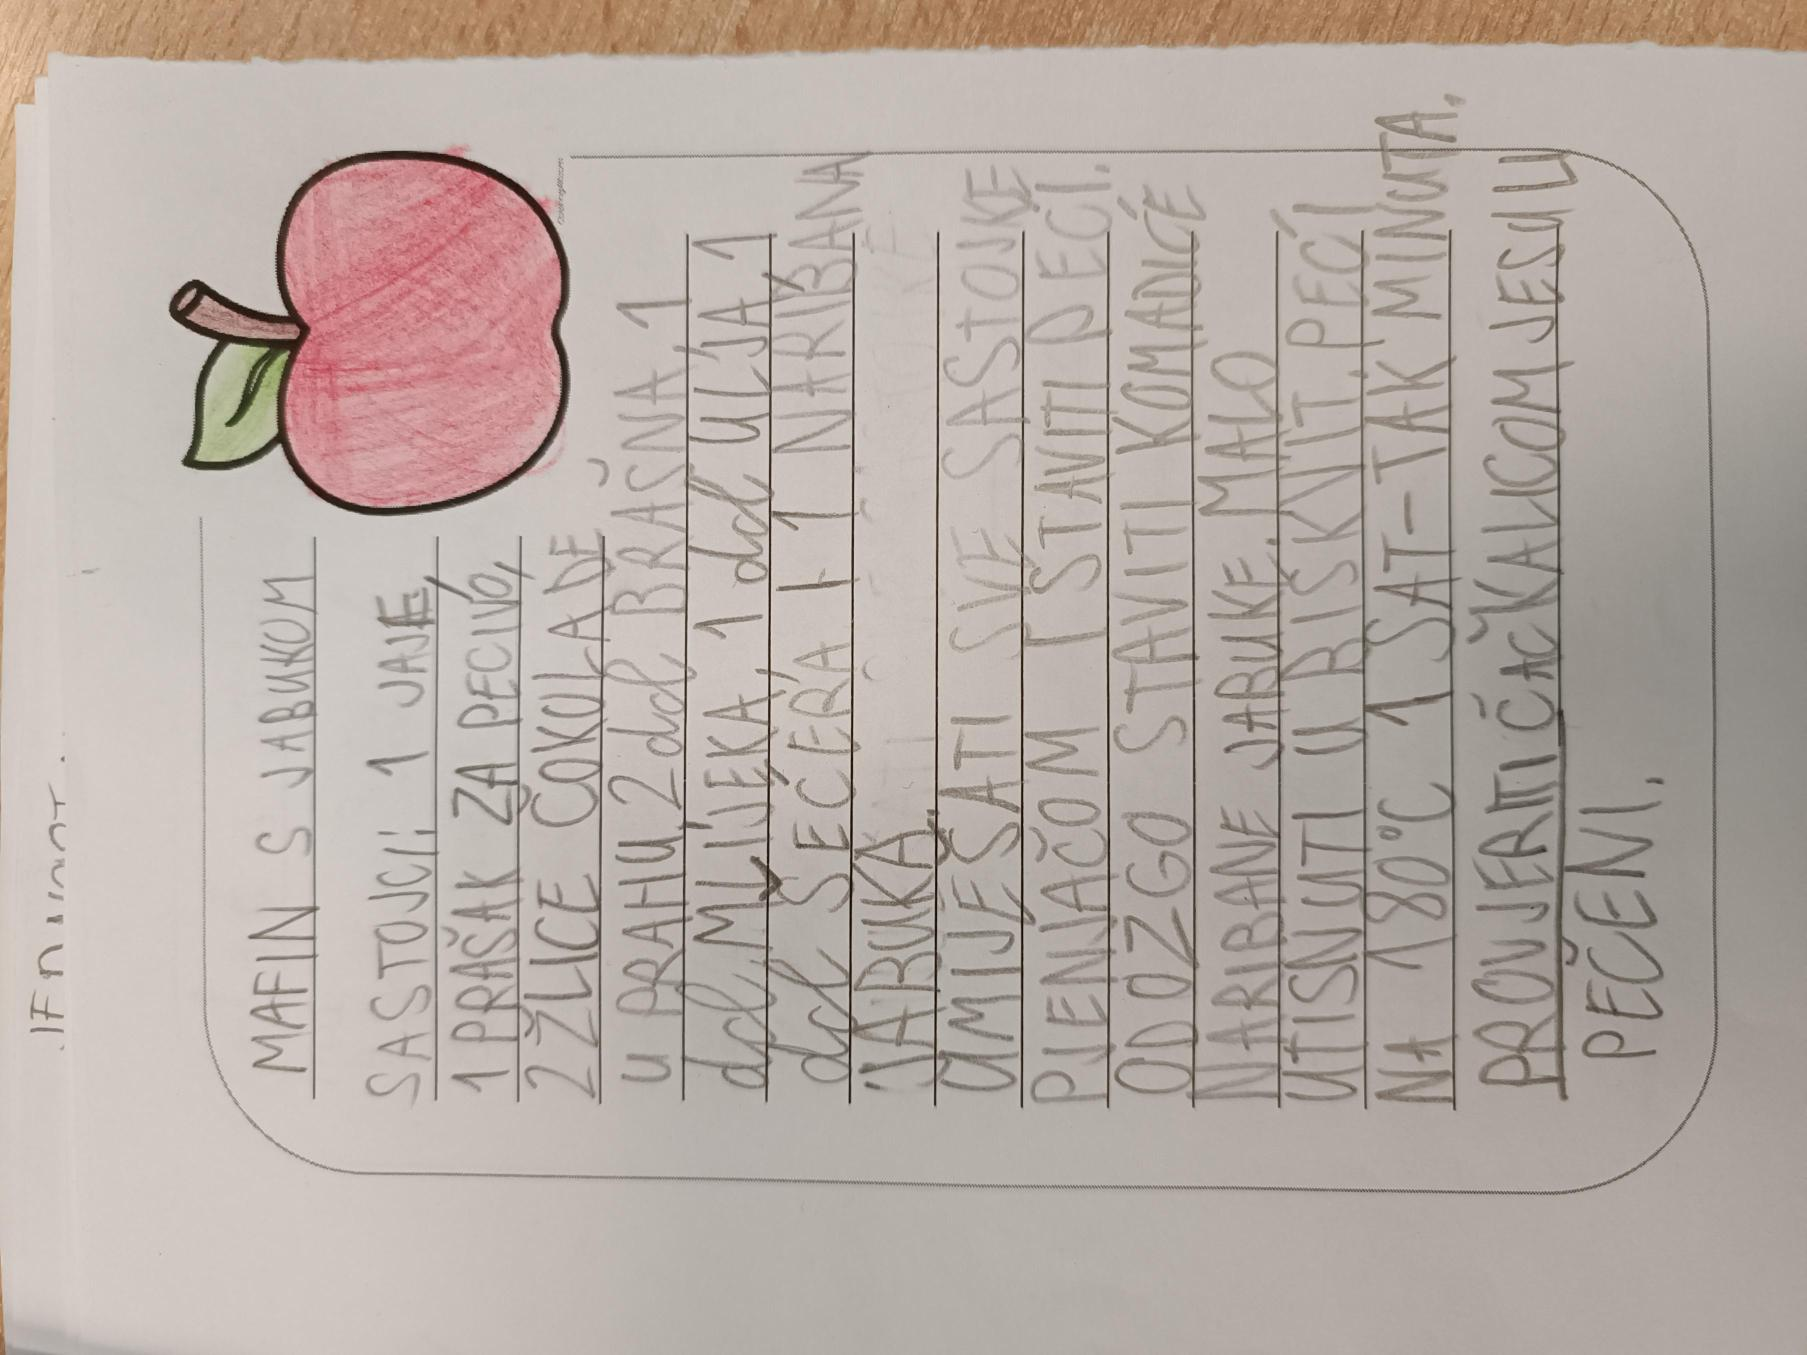 MAFIN S JABUKOM
SASTOJCI: 1 JAJE,
1 PRAŠAK ZA PECIVO,
2 ŽLICE ČOKOLADE
U PRAHU, 2 dcl BRAŠNA, 1
dcl MLIJEKA, 1 dcl ULJA, 1
dcl ŠEĆERA I 1 NARIBANA
JABUKA.
UMIJEŠATI SVE SASTOJKE
PJENJAČOM I STAVITI PEĆI.
ODOZGO STAVITI KOMADIĆE
NARIBANE JABUKE. MALO
UTISNUTI U BISKVIT. PEĆI
NA 180°C 1 SAT-TAK MINUTA.
PROVJERITI ČAČKALICOM JESU LI
PEČENI.